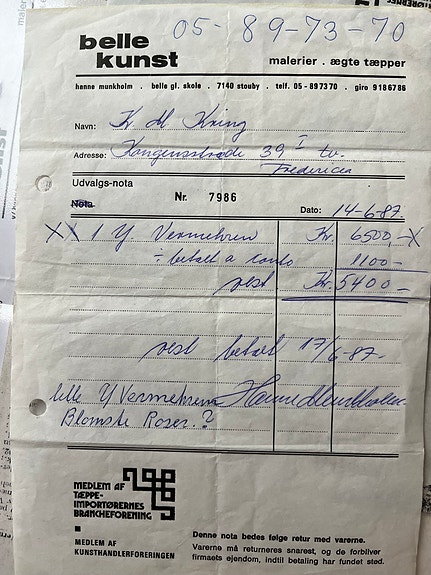 05-89-73-70
belle
kunst
malerier . ægte tæpper
hanne munkholm . belle gl. skole . 7140 stouby . telf. 05-897370 . giro 9186786
Navn: Kr M Kring
Adresse: Kongensstræde 39 I tv.
Fredericia
Udvalgs-nota
Nota
Nr. 7986
Dato: 14-6-87.
XX 1 Y Vermehren Kr. 6500,- X
÷ betalt a conto 1100-
rest Kr. 5400-
rest betalt 17/6-87-
lille Y Vermehren Hanne Munkholm
Blomste Roser.?
MEDLEM AF
TÆPPE-
IMPORTØRERNES
BRANCHEFORENING
MEDLEM AF
KUNSTHANDLERFORENINGEN
Denne nota bedes følge retur med varerne.
Varerne må returneres snarest, og de forbliver
firmaets ejendom, indtil betaling har fundet sted.